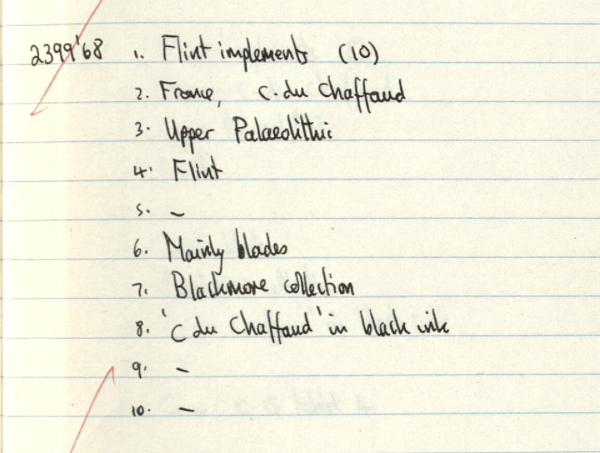 2399'68 1. Flint implements (10)
2. France, C. du Chaffaud
3. Upper Palaeolithic
4. Flint
5. –
6. Mainly blades
7. Blackmore collection
8. 'C du Chaffaud' in black ink
9. –
10. –